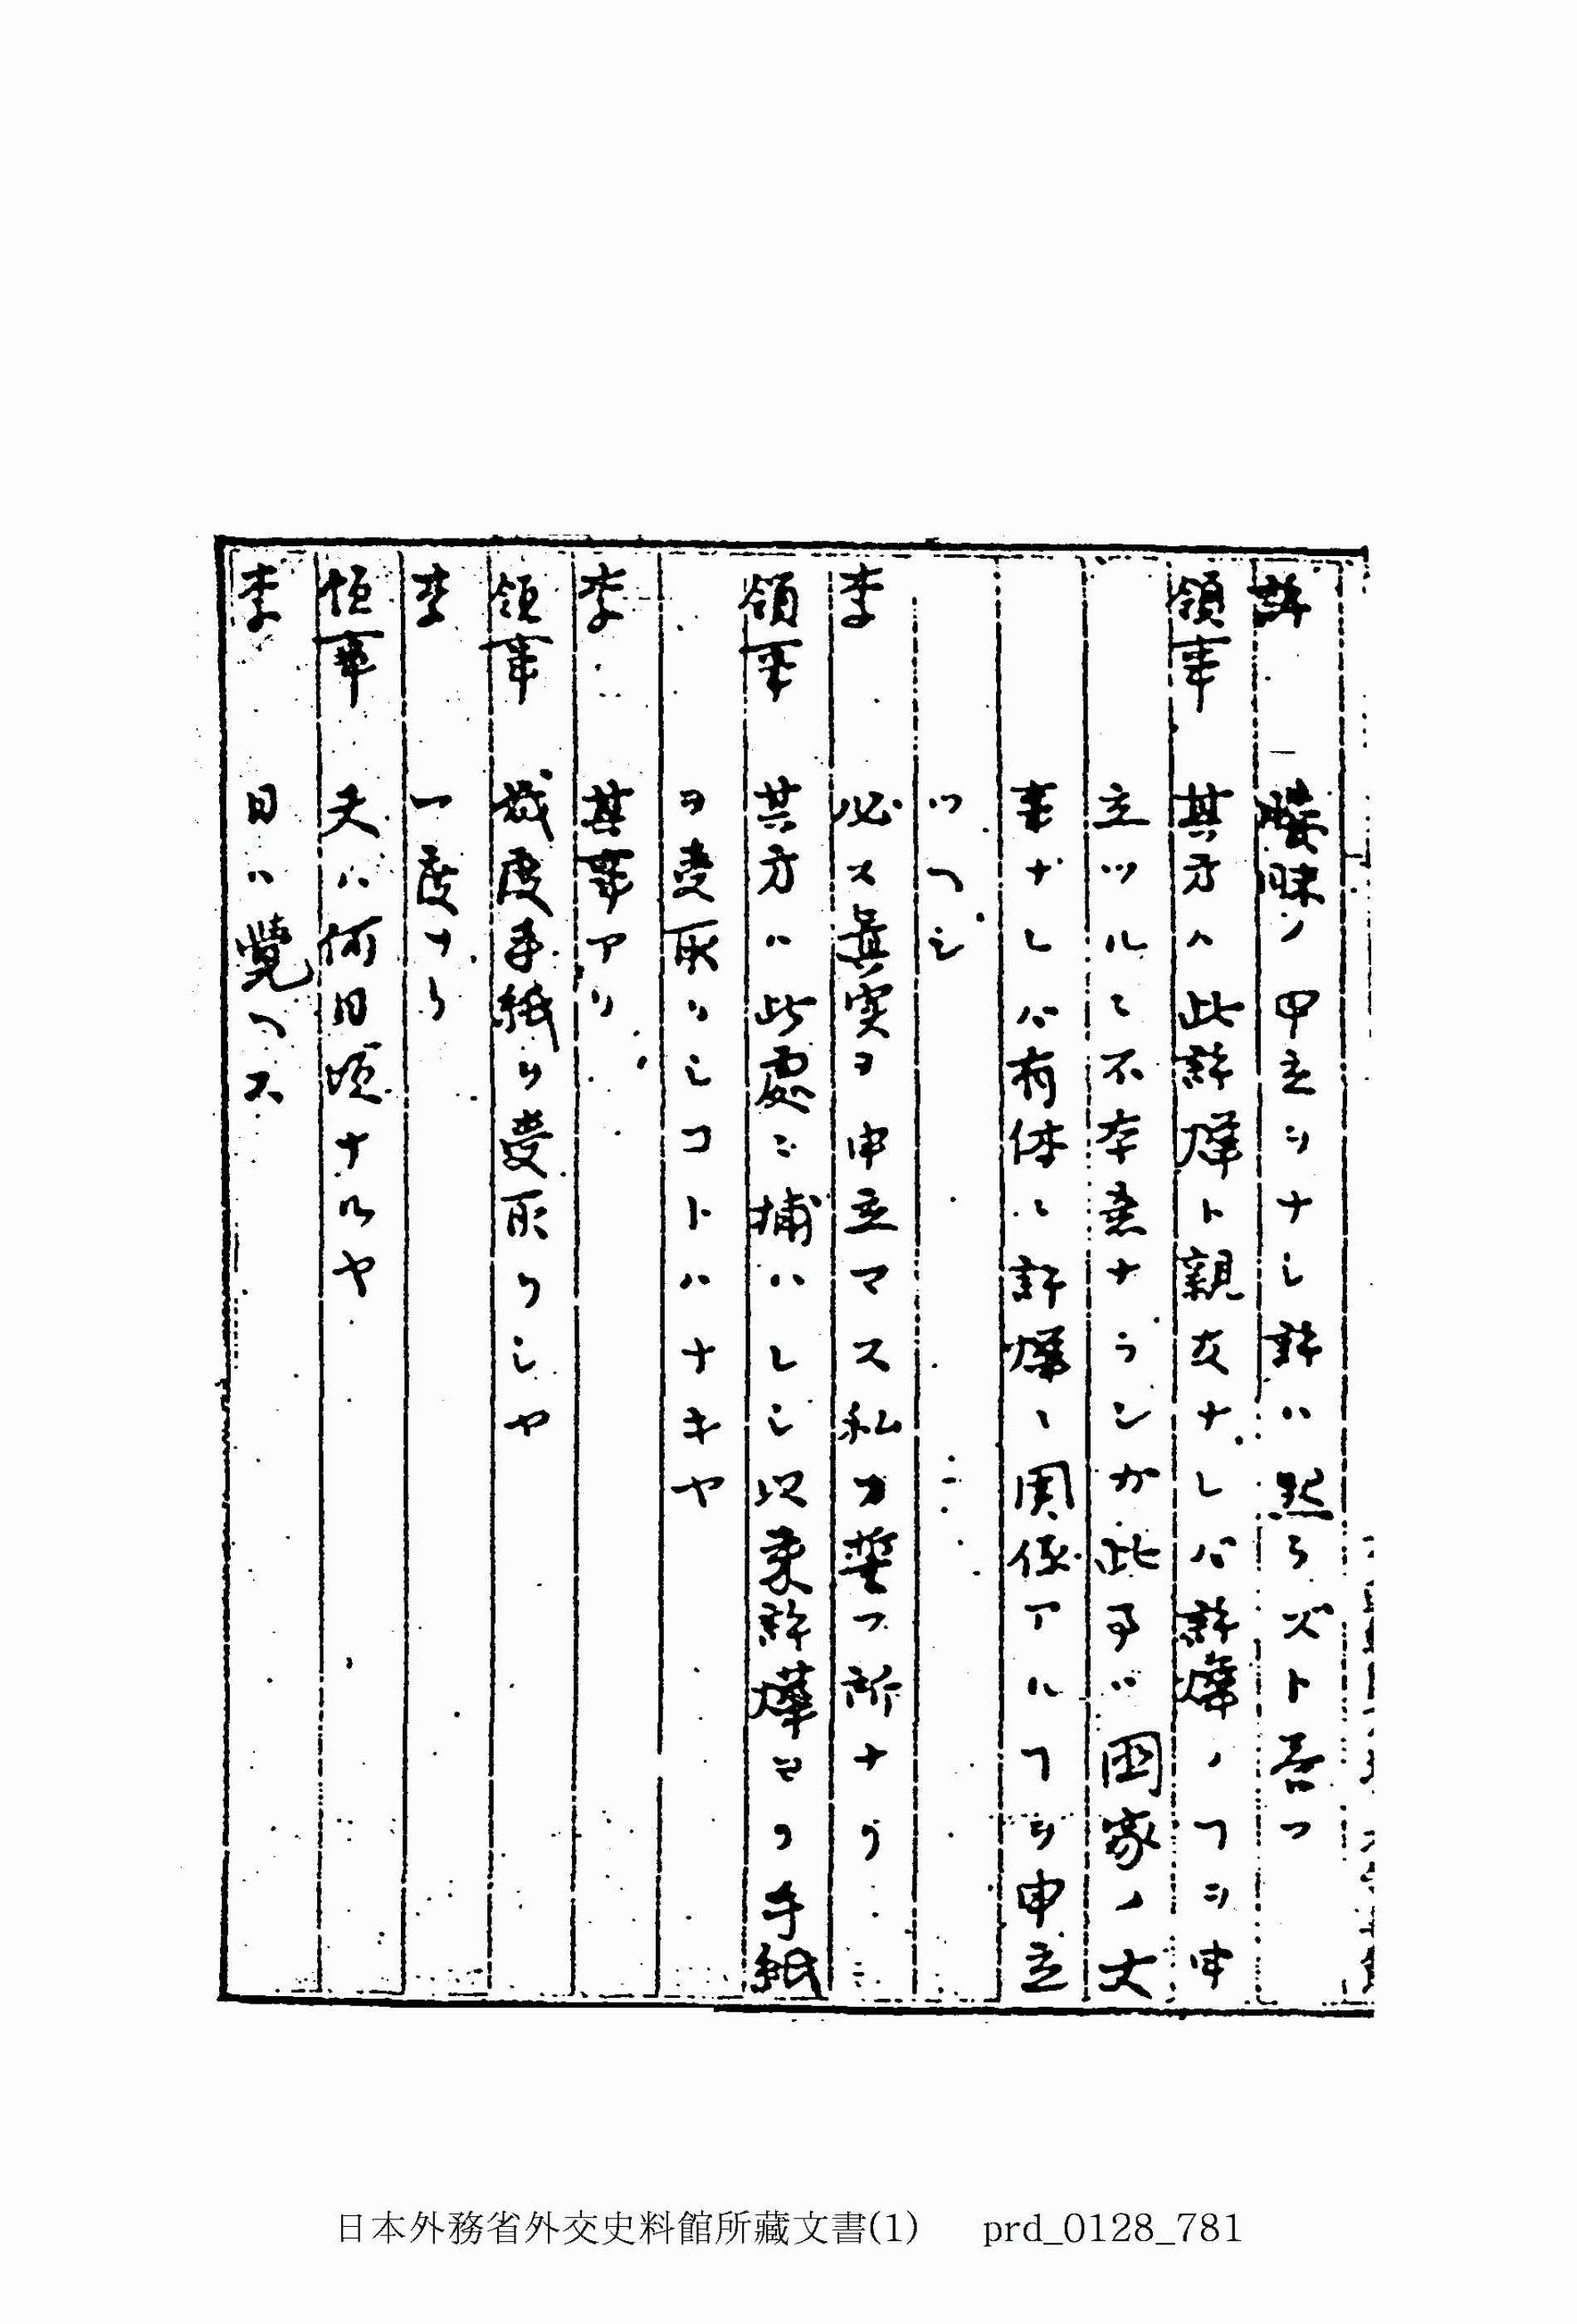 許 曖昧ノ申立シナレ許ハ然ラズト言フ
領事 其方ハ此許燁ト親友ナレバ許燁ノヿヲ申
立ツルニ不本意ナランガ此事ハ国家ノ大
事ナレバ有体ニ許燁ニ関係アルヿヲ申立
ツヘシ
李 必ス眞実ヲ申立マス私ノ誓フ所ナリ
領事 其方ハ此處ニ捕ハレシ以来許燁ヨリ手紙
ヲ受取リシコトハナキヤ
李 其事アリ
領事 幾度手紙ヲ受取リシヤ
李 一度ナリ
領事 夫ハ何日頃ナルヤ
李 日ハ覚ヘス
日本外務省外交史料館所藏文書(1) prd_0128_781